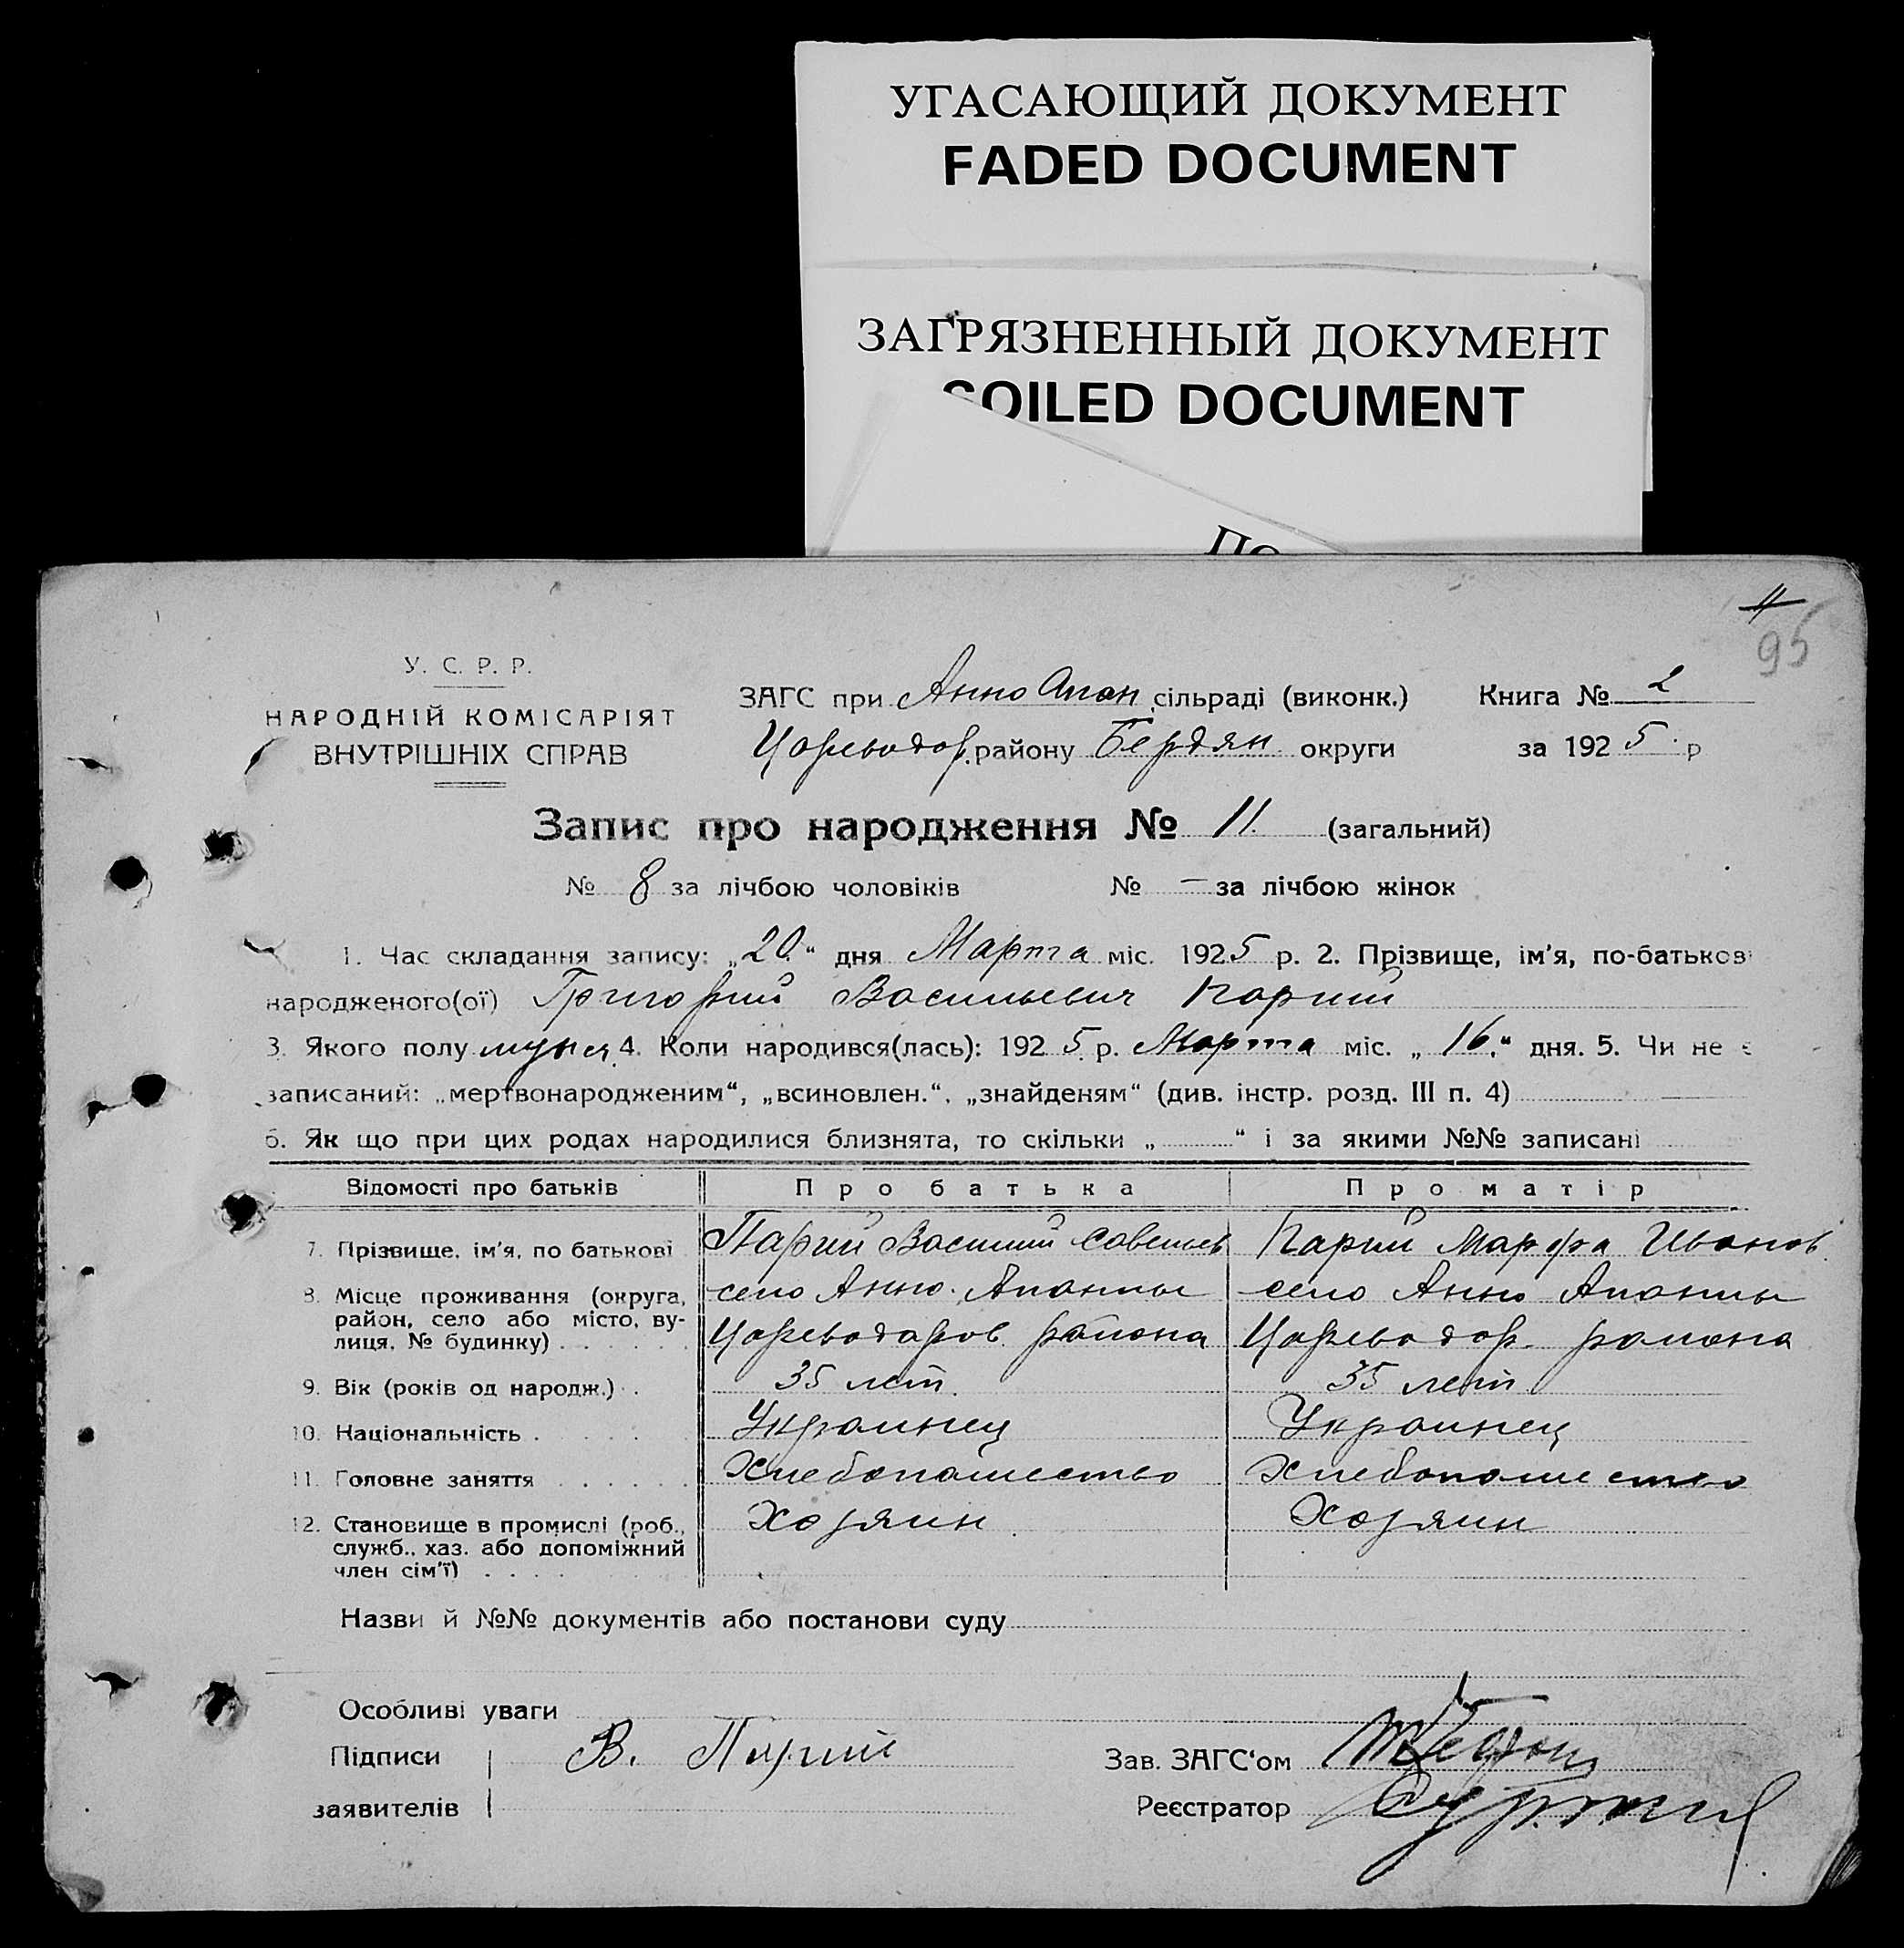 УГАСАЮЩИЙ ДОКУМЕНТ
FADED DOCUMENT
ЗАГРЯЗНЕННЫЙ ДОКУМЕНТ
SOILED DOCUMENT
По
11
95
У. С. Р. Р.
НАРОДНІЙ КОМІСАРІЯТ
ВНУТРІШНІХ СПРАВ
ЗАГС при Анно Апан сільраді (виконк.) Книга № 2
Цареводар. району Бердян округи за 1925 р
Запис про народження № 11. (загальний)
№ 8 за лічбою чоловіків № — за лічбою жінок
1. Час складання запису: „20.“ дня Марта міс. 1925 р. 2. Прізвище, ім'я, по-батьков
народженого(ої) Григорий Васильевич Парий
3. Якого полу мужс. 4. Коли народився(лась): 1925 р. Марта міс. „16.“ дня. 5. Чи не є
записаний: „мертвонародженим“, „всиновлен.“, „знайденям“ (див. інстр. розд. III п. 4)
6. Як що при цих родах народилися близнята, то скільки „ “ і за якими №№ записані
Відомості про батьків Про батька Про матір
7. Прізвище, ім'я, по батькові Парий Василий Савельев Парий Марфа Иванов.
8. Місце проживання (округа, село Анно-Апанлы село Анно Апанлы
район, село або місто, ву-
лиця, № будинку) Цареводаров. района Цареводар. района
9. Вік (років од народж.) 35 лет. 35 лет
10. Національність Украинец Украинец
11. Головне заняття Хлебопашество Хлебопашество
12. Становище в промислі (роб., Хозяин Хозяин
служб., хаз. або допоміжний
член сім'ї)
Назви й №№ документів або постанови суду
Особливі уваги
Підписи В. Парий Зав. ЗАГС'ом
заявителів Реєстратор